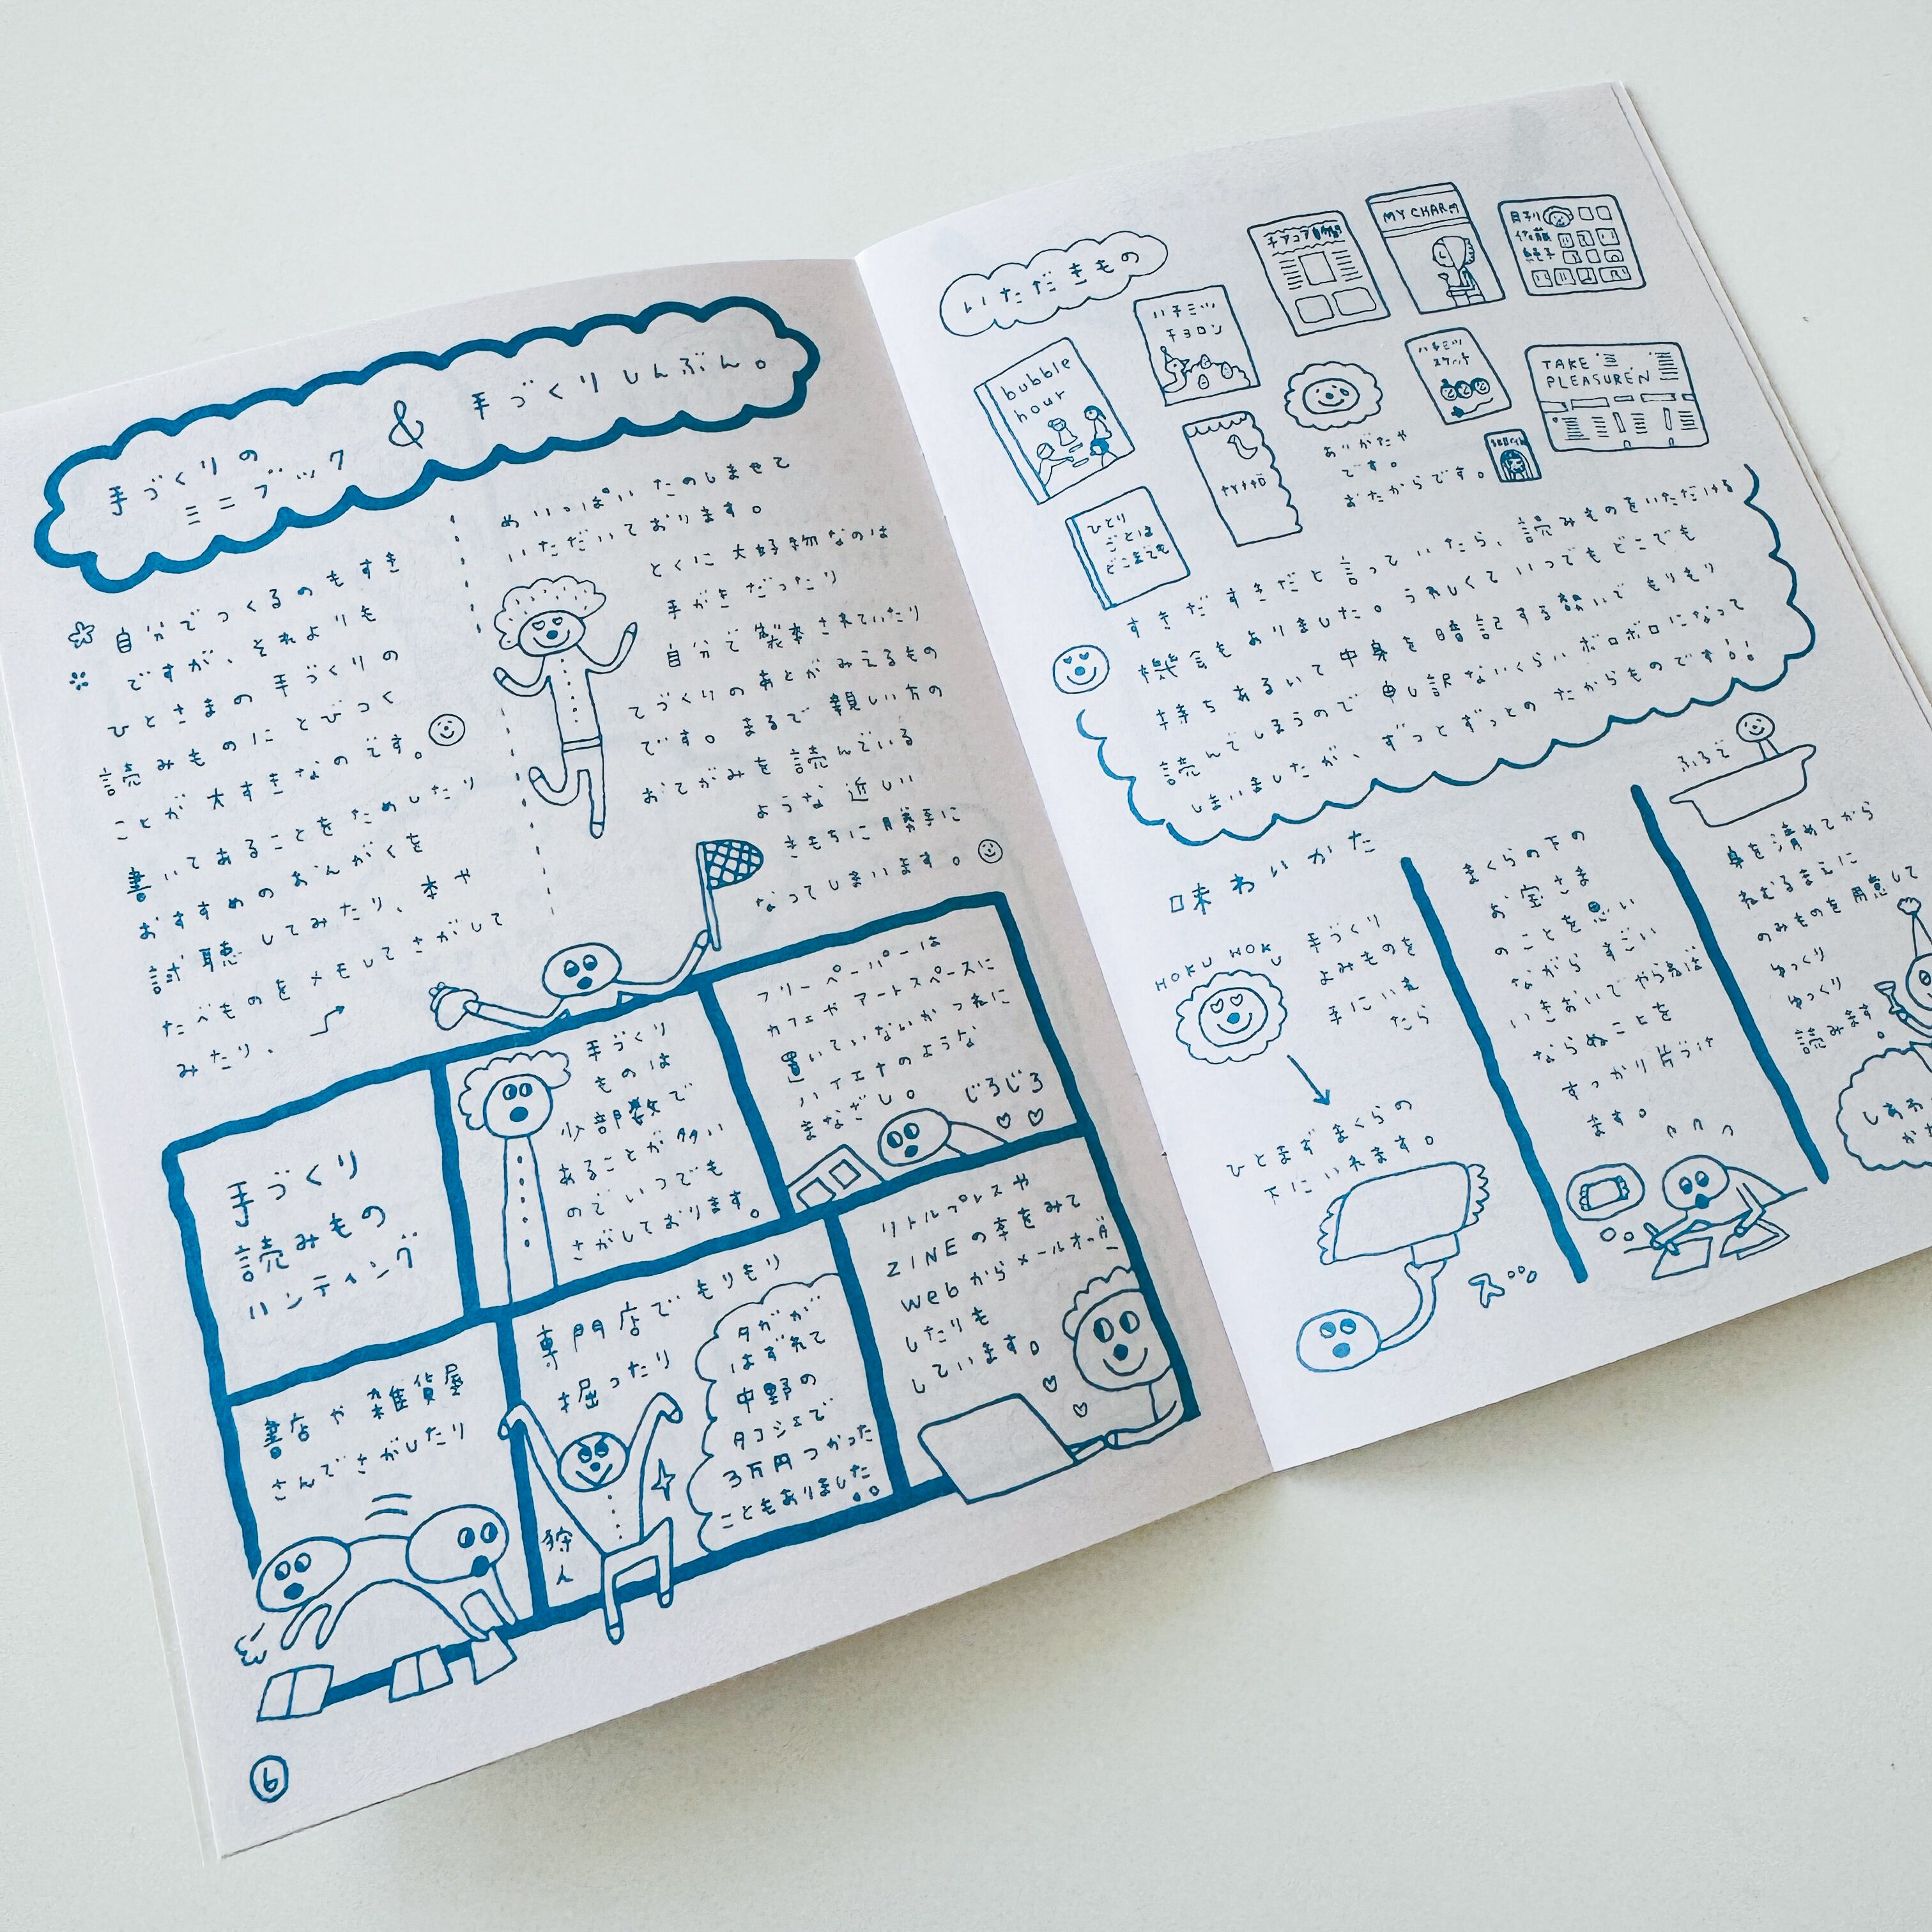 手づくりの
ミニブック
&
手づくりしんぶん。
自分でつくるのもすき
ですが、それよりも
ひとさまの手づくりの
読みものにとびつく
ことが大すきなのです。
書いてあることをためしたり
おすすめのおんがくを
試聴してみたり、本や
たべものをメモしてさがして
みたり、
めいっぱいたのしませて
いただいております。
とくに大好物なのは
手がきだったり
自分で製本されていたり
てづくりのあとがみえるもの
です。まるで親しい方の
おてがみを読んでいる
ような近しい
きもちに勝手に
なってしまいます。
手づくり
読みもの
ハンティング
手づくり
ものは
少部数で
あることが多い
のでいつでも
さがしております。
フリーペーパーは
カフェやアートスペースに
置いていないかつねに
ハイエナのような
まなざし。
じろじろ
書店や雑貨屋
さんでさがしたり
専門店でもりもり
掘ったり
狩人
タガが
はずれて
中野の
タコシェで
3万円つかった
こともありました
リトルプレスや
ZINEの本をみて
webからメールオーダー
したりも
しています。
6
いただきもの
bubble
hour
ハチミツ
チョロン
MY CHARM
月刊
佐藤
純子
ハチミツ
スケット
TAKE
PLEASURE'N
ひとり
ごとは
どこまでも
ありがたや
です。
おたからです。
すきだすきだと言っていたら、読みものをいただける
機会もありました。うれしくていつでもどこでも
持ちあるいて中身を暗記する勢いでもりもり
読んでしまうので申し訳ないくらいボロボロになって
しまいましたが、ずっとずっとのたからものです!!
味わいかた
HOKU HOKU
手づくり
よみものを
手にいれ
たら
ひとまずまくらの
下にいれます。
まくらの下の
お宝さま
のことを思い
ながらすごい
いきおいでやらねば
ならぬことを
すっかり片づけ
ます。
ふろで
身を清めてから
ねむるまえに
のみものを用意して
ゆっくり
ゆっくり
読みます。
しあわ